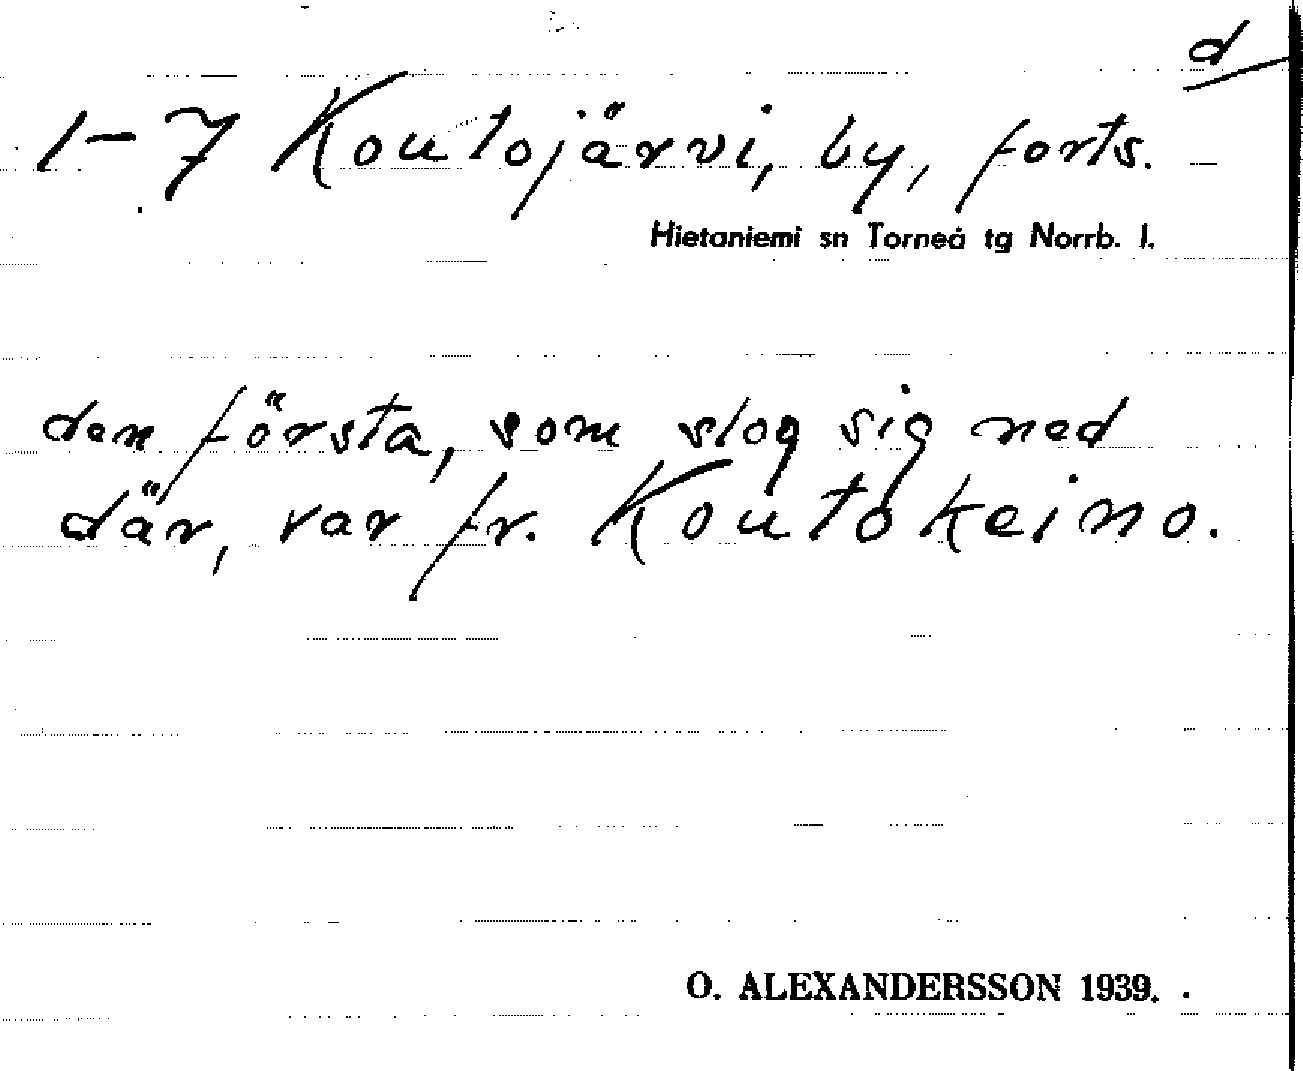 d
1-7 Koutojärvi, by, forts.
Hietaniemi sn Torneå tg Norrb. l.
den första, som slog sig ned
där, var fr. Koutokeino.
O. ALEXANDERSSON 1939.